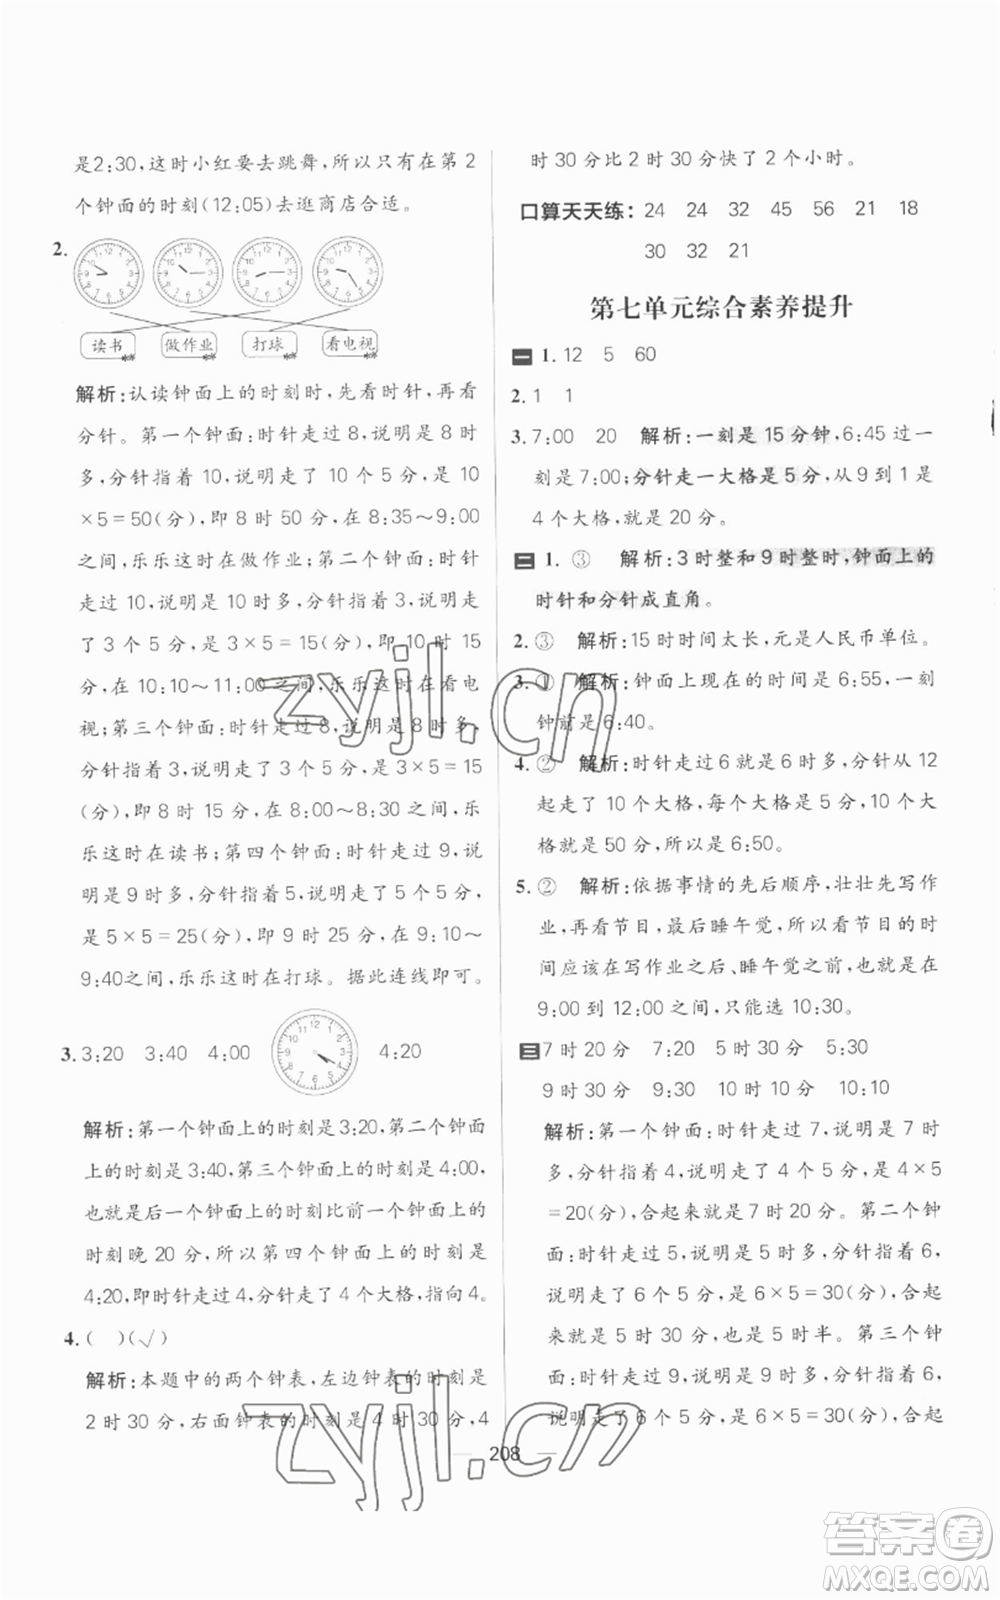 是2:30,这时小红要去跳舞,所以只有在第2
个钟面的时刻(12:05)去逛商店合适。
2.
读书 做作业 打球 看电视
解析:认读钟面上的时刻时,先看时针,再看
分针。第一个钟面:时针走过8,说明是8时
多,分针指着10,说明走了10个5分,是10
×5=50(分),即8时50分,在8:35～9:00
之间,乐乐这时在做作业;第二个钟面:时针
走过10,说明是10时多,分针指着3,说明走
了3个5分,是3×5=15(分),即10时15
分,在10:10～11:00之间,乐乐这时在看电
视;第三个钟面:时针走过8,说明是8时多,
分针指着3,说明走了3个5分,是3×5=15
(分),即8时15分,在8:00～8:30之间,乐
乐这时在读书;第四个钟面:时针走过9,说
明是9时多,分针指着5,说明走了5个5分,
是5×5=25(分),即9时25分,在9:10～
9:40之间,乐乐这时在打球。据此连线即可。
3. 3:20 3:40 4:00 4:20
解析:第一个钟面上的时刻是3:20,第二个钟面
上的时刻是3:40,第三个钟面上的时刻是4:00,
也就是后一个钟面上的时刻比前一个钟面上的
时刻晚20分,所以第四个钟面上的时刻是
4:20,即时针走过4,分针走了4个大格,指向4。
4.( )(√)
解析:本题中的两个钟表,左边钟表的时刻是
2时30分,右面钟表的时刻是4时30分,4
时30分比2时30分快了2个小时。
口算天天练:24 24 32 45 56 21 18
30 32 21
第七单元综合素养提升
一 1.12 5 60
2.1 1
3.7:00 20 解析:一刻是15分钟,6:45过
一刻是7:00;分针走一大格是5分,从9到1是
4个大格,就是20分。
二 1.③ 解析:3时整和9时整时,钟面上的
时针和分针成直角。
2.③ 解析:15时时间太长,元是人民币单位。
3.① 解析:钟面上现在的时间是6:55,一刻
钟前是6:40。
4.② 解析:时针走过6就是6时多,分针从12
起走了10个大格,每个大格是5分,10个大
格就是50分,所以是6:50。
5.② 解析:依据事情的先后顺序,壮壮先写作
业,再看节目,最后睡午觉,所以看节目的时
间应该在写作业之后、睡午觉之前,也就是在
9:00到12:00之间,只能选10:30。
三 7时20分 7:20 5时30分 5:30
9时30分 9:30 10时10分 10:10
解析:第一个钟面:时针走过7,说明是7时
多,分针指着4,说明走了4个5分,是4×5
=20(分),合起来就是7时20分。第二个钟
面:时针走过5,说明是5时多,分针指着6,
说明走了6个5分,是6×5=30(分),合起
来就是5时30分,也就是5时半。第三个钟
面:时针走过9,说明是9时多,分针指着6,
说明走了6个5分,是6×5=30(分),合起
208
zyjl.cn
zyjl.cn
答案圈
MXQE.COM